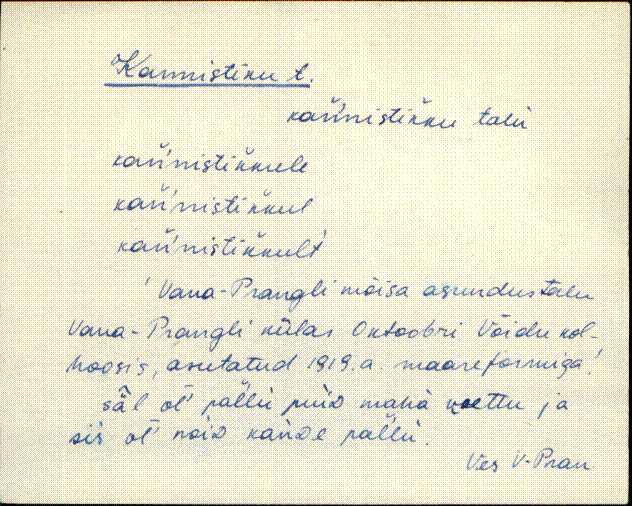 Kannistiku t.
kan̆nistik̆ku talu
kan̆nistik̆kule
kan̆nistik̆kul
kan̆nistik̆kult
'Vana-Prangli mõisa asundustalu
Vana-Prangli külas Oktoobri Võidu kol-
hoosis, asutatud 1919. a. maareformiga'.
säl ol' pal̆lu puid maha
ja
siis ol' noid kande pal̆lu.
Ves V-Pran